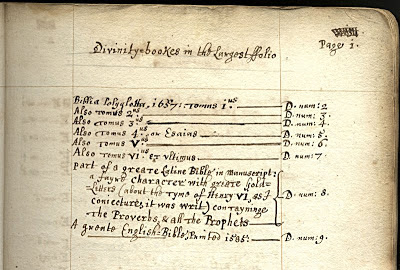 Page 1.
Divinity-bookes in the Largest ffolio
Biblia Polyglotta, 1657: Tomus 1:us D. num: 2
Also Tomus 2:us D. num: 3.
Also Tomus 3:us D. num: 4.
Also Tomus 4:us or Esaias D. num: 5.
Also Tomus V:us D. num: 6.
Also Tomus VI:us et ultimus. D. num: 7.
part of a greate Latine Bible, in manuscript:
a fayre character with greate gold-
Letters (about the tyme of Henry VI, as I
coniecture, it was writ) contayninge D. num: 8.
the Proverbs, & all the Prophets
A greate English-Bible, Printed 1585: D. num: 9.